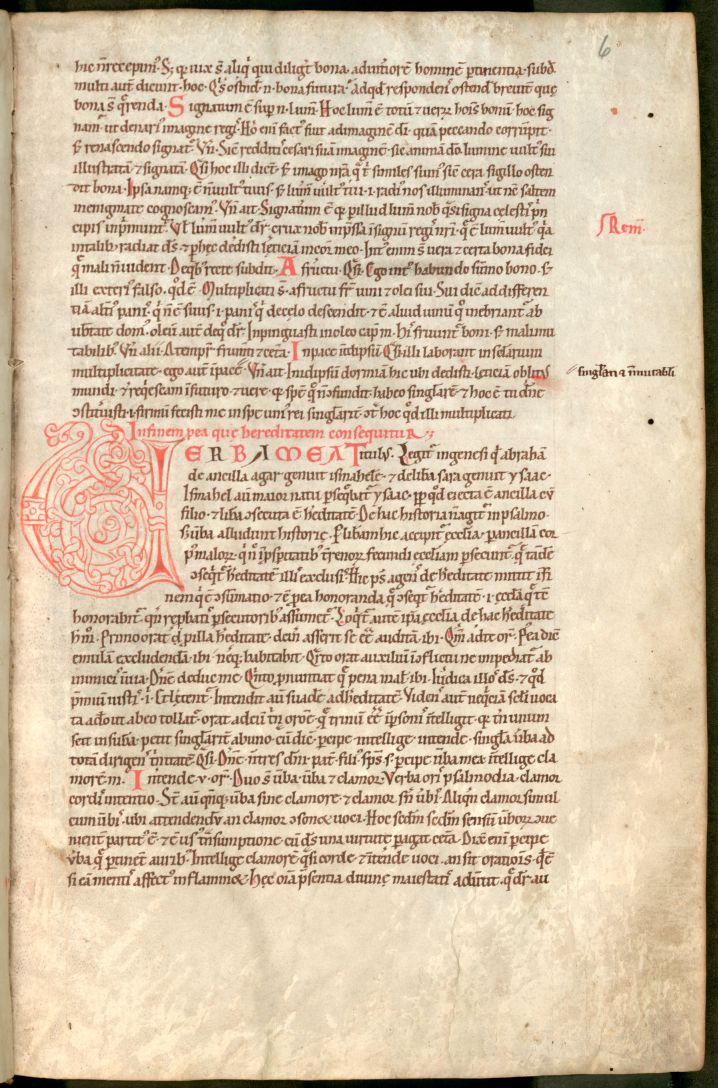 6
hic n̄ recepim᷒. S; q᷒ uix s̄ aliq̇ qui diligt̄ bona aduītiorē hominē ꝑtinentia. subd̄.
multi aut̄ dicunt. hoc. Q̄s ostend̄ n̄. bona futura. Ad qd̄ responden᷒ ostend̄ breuit̄ que
bona s̄ q̄renda. Signatum ē sup̄ n̄. lum̄. Hoc lum̄ ē totū ⁊ uerū hoīs bonū. hoc sig
nam᷒ ut denari᷒ imagine regis. Hō enī fact᷒ fuit ad imaginē dī. quā peccando corrūpit.
⁊ renascendo signat᷒. Vn̄. Sic reddit᷒ cesari suā imaginē. sic anima dō lumine uult᷒ sui
illustrata ⁊ signata. Q̄si hoc illi dicēt. ⁊ imago nr̄a q̄ t̄ similes sum᷒ sic cera sigillo osten
dit bona. Ipsa namq; ē n̄ uult᷒ tuus. ⁊ lum̄ uult᷒ tui. i. radi᷒ nos illuminans ut nē saltem
in enigmate cognoscam᷒. Vn̄ ait. Signatum ē q᷒ ꝑ illud lum̄ nob̄ q̄si signa celestis p̄n
cipis inprimunt᷒. Vl̄ lum̄ uult᷒ dr̄. crux nob̄ inp̄ssa ī signū regis nr̄i. q̄ ē lum̄ uult᷒ q̇a
in talib᷒ radiat ds̄. ⁊ ꝑ hec dedisti leticiam ī corde meo. Int᷒ enim s̄ uera ⁊ certa bona fidei
que mali n̄ uident. De quib᷒ recte subdit. A fructu. Q̄si. Ego int᷒ habundo sūmo bono. ⁊
illi exteri᷒ falso. qd̄ ē. Multiplicati s̄. a fructu fr̄. uini ⁊ olei sui. Sui dicit ad differen
tiā alt̄i᷒ panis. q̇ n̄ ē suus. i. panis q̇ de celo descendit. ⁊ ē aliud uinū q᷒ inebriant᷒ ab
ubtate dom᷒. oleū aut̄ de quo dr̄. Inpinguasti in oleo cap̄ m̄. His fruunt᷒ boni. ⁊ mali mu
tabilib᷒. Vn̄ alii. A tempr̄ frum̄ti ⁊ cet̄a. In pace in idipsū. Q̄si illi laborant in seclarium
multiplicitate. ego aut̄ in pace. Vn̄ ait. In idipsū dormiā hic uti dedisti leticiā. oblit᷒
mundi. ⁊ reqescam in futuro. ⁊ uere. q᷒ spē q̄ n̄ cōfundit habeo singlarē. ⁊ hoc ē tu dn̄e
cōstituisti. i. firmū fecisti me in spe uni᷒ rei singlarit̄. cōt̄ hoc qd̄ illi multiplicati.
In finem pea que hereditatem consequitur
VERBA MEA. Titul᷒. Legit᷒ in genesi q᷒ abrahā
de ancilla agar genuit ismahele. ⁊ de lib̄a sara genuit ysaac.
Ismahel aut̄ maior natu ꝑseq̄but᷒ ysaac. ꝑp̄ qd̄ eiecta ē ancilla cū
filio. ⁊ libera cōsecuta ē heditatē. De hac historia n̄ agit᷒ in psalmo.
s; uerba alludunt historie. Per liberam hic accipit᷒ ecclesia. ꝑ ancillam cor
p᷒ malor᷒. q̇ n̄ in p̄spitatib᷒ t̄renor᷒ fecundi ecclesiam ꝑsecunt᷒. q̄ tandē
cōseq̄t᷒ heditatē illis exclusis. Hic ps̄ agens de heditate mittit īfi
nem q̇ ē cōsumatio. ⁊ ē ꝓ ea honoranda q̄ cōseq̄t᷒ heditatē. i. ecclesia q̄ tc̄
honorabit᷒. qn̄ rephatis ꝑsecutorib᷒ assumet᷒. Loq̄t᷒ aut̄ ipsa ecclesia de hac heditate
h᷒m̄. Primo orat q᷒ ꝑ illa heditate. dein̄ asserit se eē auditā. ibi. Qm̄ ad te or̄. Tercia diē
emulā excludendā. ibi. neq; habitabit. Q̄rto orat auxiliū in cōflictu ne impediat᷒ ab
inimicis in uia. Dn̄e deduc me. Q̇nto pronuntiat q̄ pena malis. ibi. Iudica illos ds̄. ⁊ qd̄
p̄mium iustis. ibi. Et letent᷒. Intendit aut̄ suadē ad heditatē. Videns aut̄ neq̇ciā seculi uoca
ta ad o ut ab eo tollat᷒. orat ad eū trin̄ orōē. q᷒ trinū eē in ꝑsonis intelligit. q᷒ t̄n unum
scit in subā. petit singlarit̄ ab uno. cū dicit. percipe. intellige. intende. singla uerba ad
totā dirigens trinitatē. Q̄si. Dn̄e. n̄ tres dn̄i pat̄. fili᷒. sp̄s s̄. percipe uerba mea. intellige cla
morē m̄. Intende v. or̄. Duo s̄ uerba. uerba ⁊ clamor. Verba oris psalmodia. clamor
cordis intentio. Sunt aut̄ qn̄q; uerba sine clamore. ⁊ clamor sn̄ uerbis. Aliqn̄ clamor simul
cum uerbis. ubi attendendū an clamor cōsonet uoci. Hoc secd̄m secd̄m sensum uerbor᷒ cōue
nient̄ partit᷒ ē. ⁊ ē usus t̄nsumptione. cum ds̄ una uirtute peragat cet̄a. Dicit enī percipe
uerba q̄ pertinent auribus. Intellige clamorē q̄si corde. ⁊ intende uoci. an sit orationis. qd̄ ē
si eā mentis affect᷒ inflammet. Hec omnia p̄sentia diuine maiestatis aduertit. q̄ dr̄ au
Rem̄.
singlarī ⁊ īmutabli